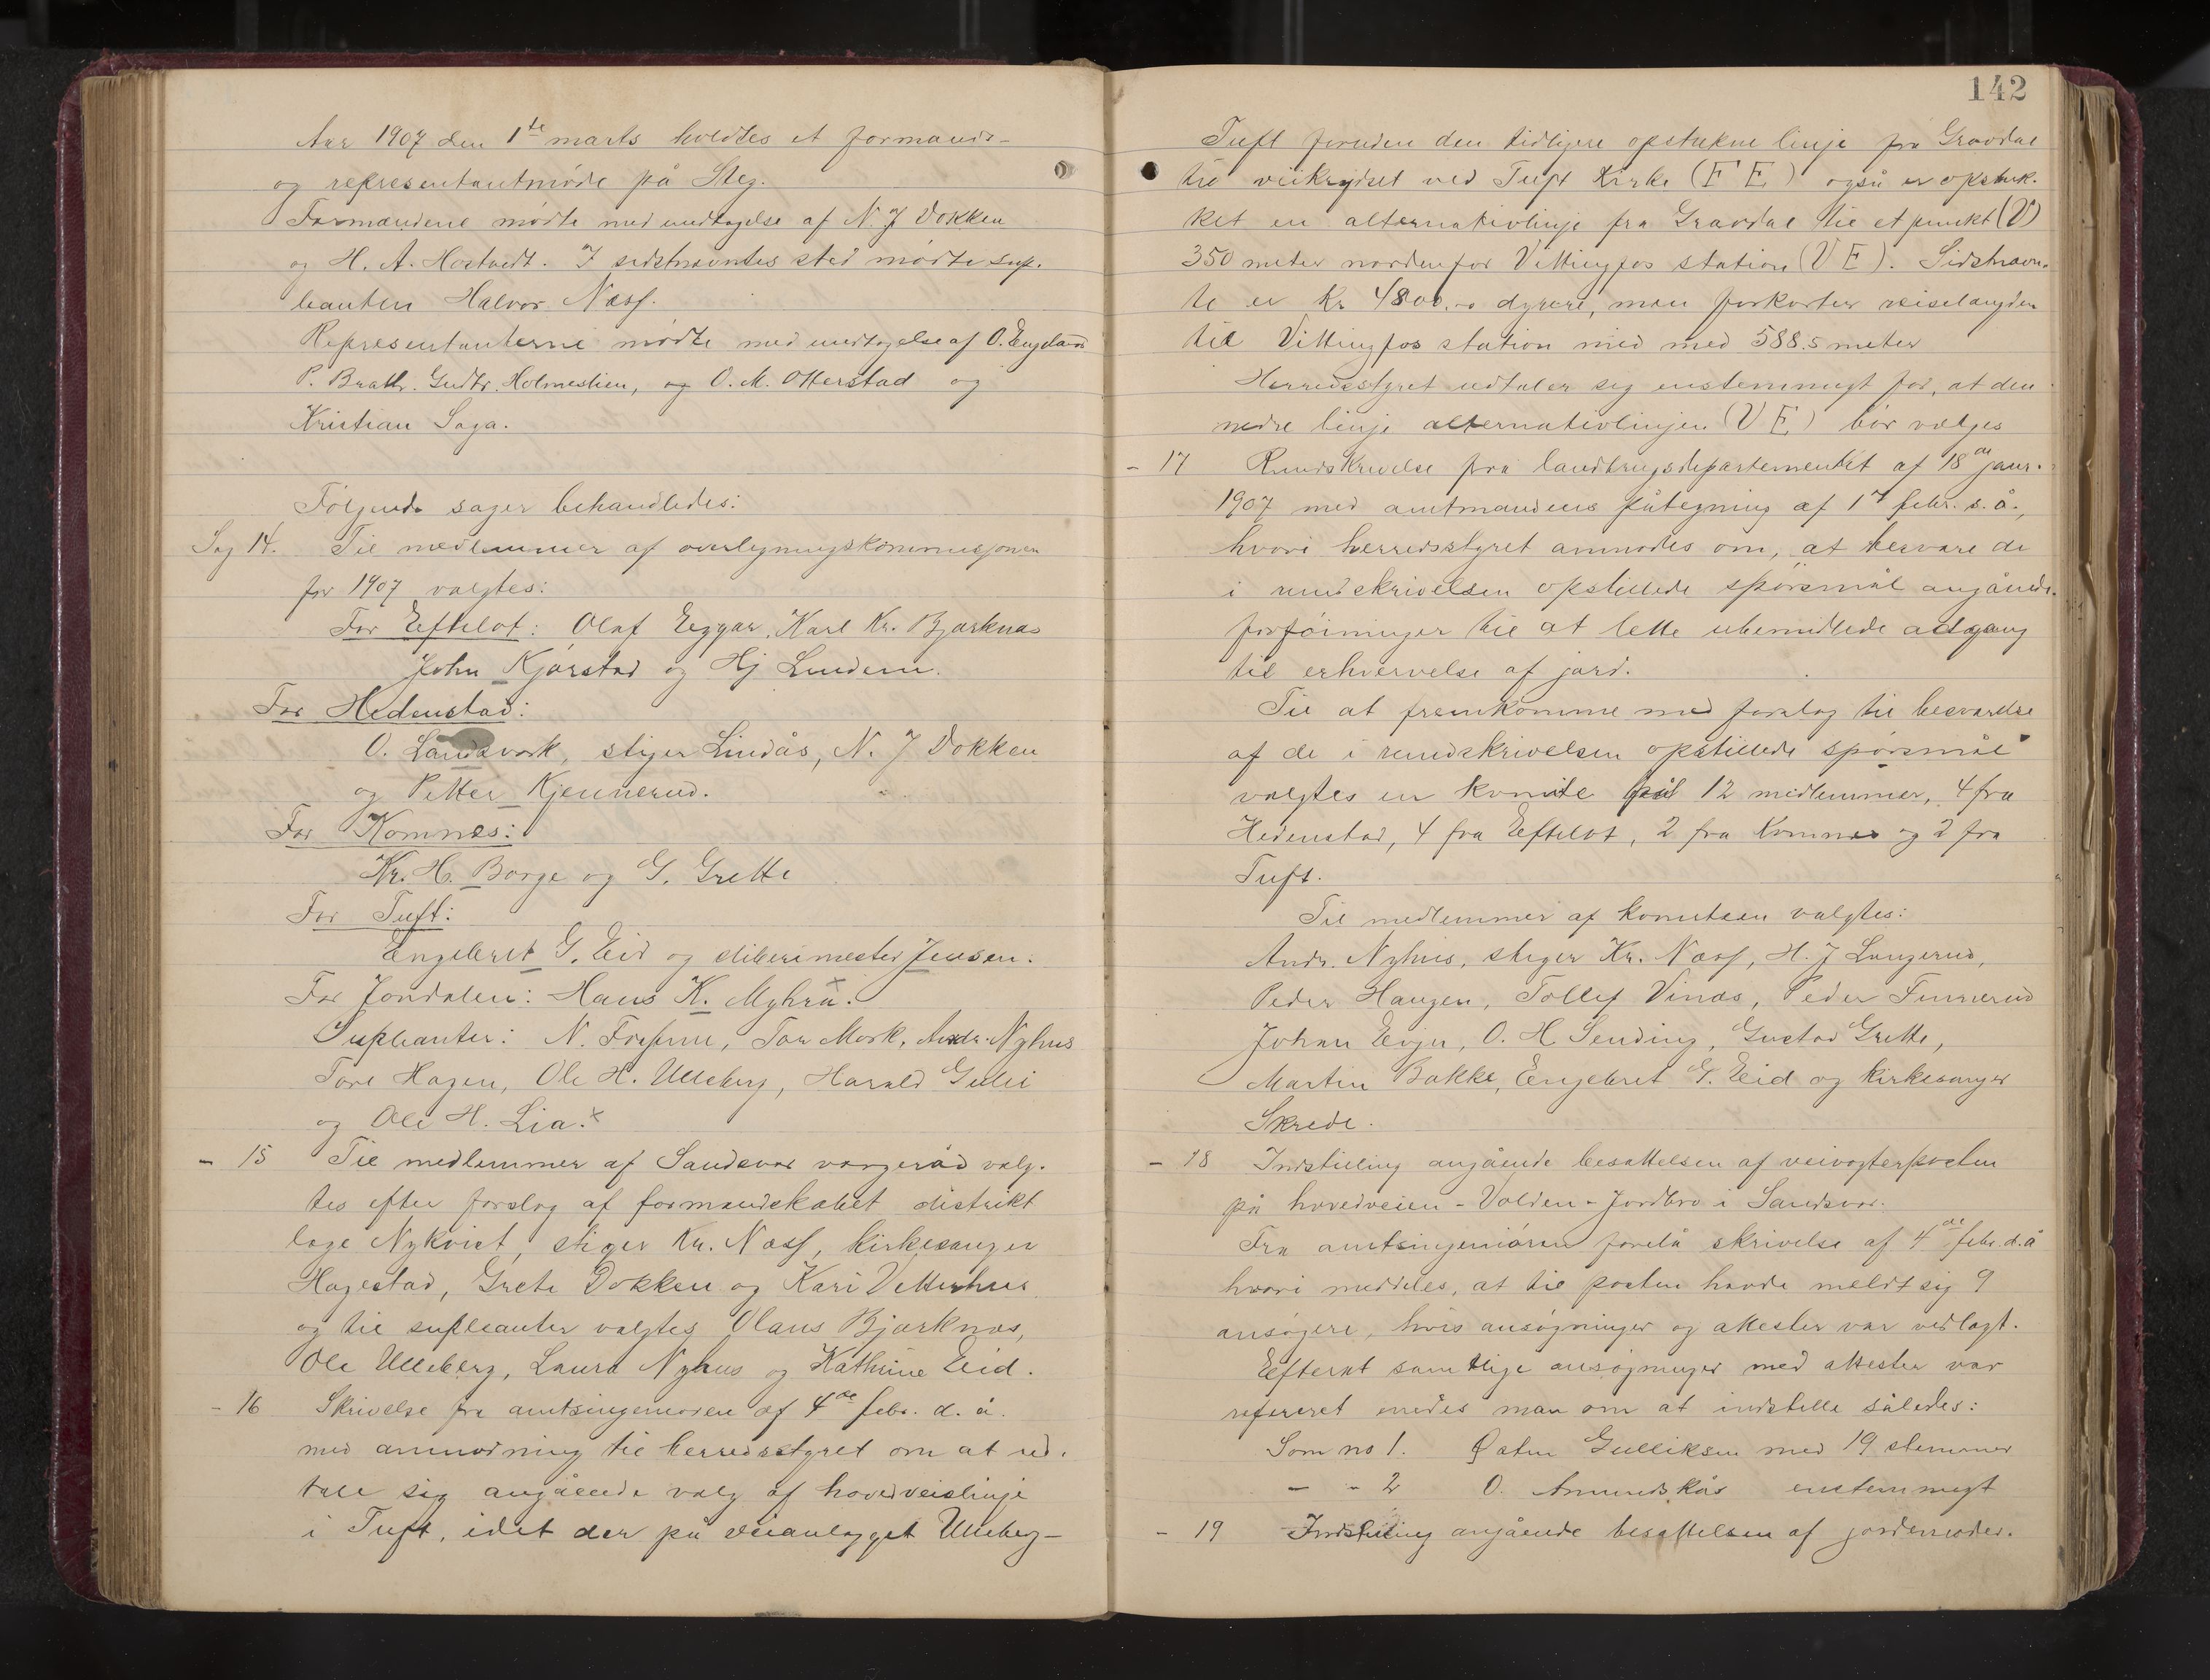 Aar 1907 den 1ste marts holdtes et formands-
og representantmøde på Steg.
Formændene mødte med undtagelse af N. J Dokken
og H. A. Hostvedt. I sidstnævntes sted mødte sup-
leanten Halvor Næss.
Representanterne mødte med undtagelse af O. Engdam
P. Brath. Gudbr. Holmeslien, og O. M. Otterstad og
Kristian Saga.
Følgende sager behandledes:
Sag 14. Til medlemmer af overligningskommisjonen
for 1907 valgtes:
For Efteløt: Olaf Eggar, Karl Kr. Bjørknæs
John Kjørstad og Hj Lindem.
For Hedenstad:
O. Landsverk, stiger Lindås, N. J Dokken
og Petter Kjennerud.
For Komnes:
Kr. H. Borge og G. Grette
For Tuft:
Engebret G. Eid og sliberimester Jensen.
For Jondalen: Hans K. Myhra.
Supleanter: N. Fossum, Tor Mork, Andr. Nyhus
Tore Hagen, Ole H. Ulleberg, Harald Gulli
og Ole H. Lia.
- 15 Til medlemmer af Sandsvær vergeråd valg-
tes efter forslag af formandskabet distrikt
læge Nykvist, stiger Kr. Næss, kirkesanger
Hagestad, Grete Dokken og Kari Vetterhus
og til supleanter valgtes Olaus Bjørknæs,
Ole Ulleberg, Laura Nyhus og Kathrine Eid.
- 16 Skrivelse fra amtsingeniøren af 4de febr. d. å.
med anmodning til herredsstyret om at ud-
tale sig angående valg af hovedveislinje
i Tuft, idet der på veianlægget Ulleberg-
142
Tuft foruden den tidligere opstukne linje fra Gravdal
til veikrydset ved Tuft Kirke (F E) også er opstuk-
ket en alternativlinje fra Gravdal til et punkt (V)
350 meter nordenfor Vittingfos station (V E). Sidstnævn-
te er Kr 4800.- dyrere, men forkorter veilængden
til Vittingfos station med med 588.5 meter
Herredsstyret udtaler sig enstemmigt for, at den
nedre linje alternativlinjen (V E) bør vælges
- 17 Rundskrivelse fra landbrugsdepartementet af 18de janr.
1907 med amtmandens påtegning af 1ste febr. s. å.,
hvori herredsstyret anmodes om, at besvare de
i rundskrivelsen opstillede spørsmål angående
forføininger til at lette ubemidlede adgang
til erhvervelse af jord.
Til at fremkomme med forslag til besvarelse
af de i rundskrivelsen opstillede spørsmål
valgtes en komite på 12 medlemmer, 4 fra
Hedenstad, 4 fra Efteløt, 2 fra Komnes og 2 fra
Tuft.
Til medlemmer af komiteen valgtes:
Andr. Nyhus, stiger Kr. Næss, H. J Langerud,
Peder Haugen, Tollef Vinæs, Peder Finnerud
Johan Evju, O. H Sending, Gustav Grette,
Martin Bakke, Engebret G. Eid og kirkesanger
Skrede.
- 18 Indstilling angående besættelsen af veivogterposten
på hovedveien - Volden - Jordbro i Sandsvær.
Fra amtsingeniøren forelå skrivelse af 4de febr. d. å
hvori meddeles, at til posten havde meldt sig 9
ansøgere, hvis ansøgninger og attester var vedlagt.
Efterat samtlige ansøgninger med attester var
refereret enedes man om at indstille således:
Som no 1. Østen Gulliksen med 19 stemmer
- - 2 O. Amundskås enstemmigt
- 19 Indstilling angående besættelsen af jordemoder-